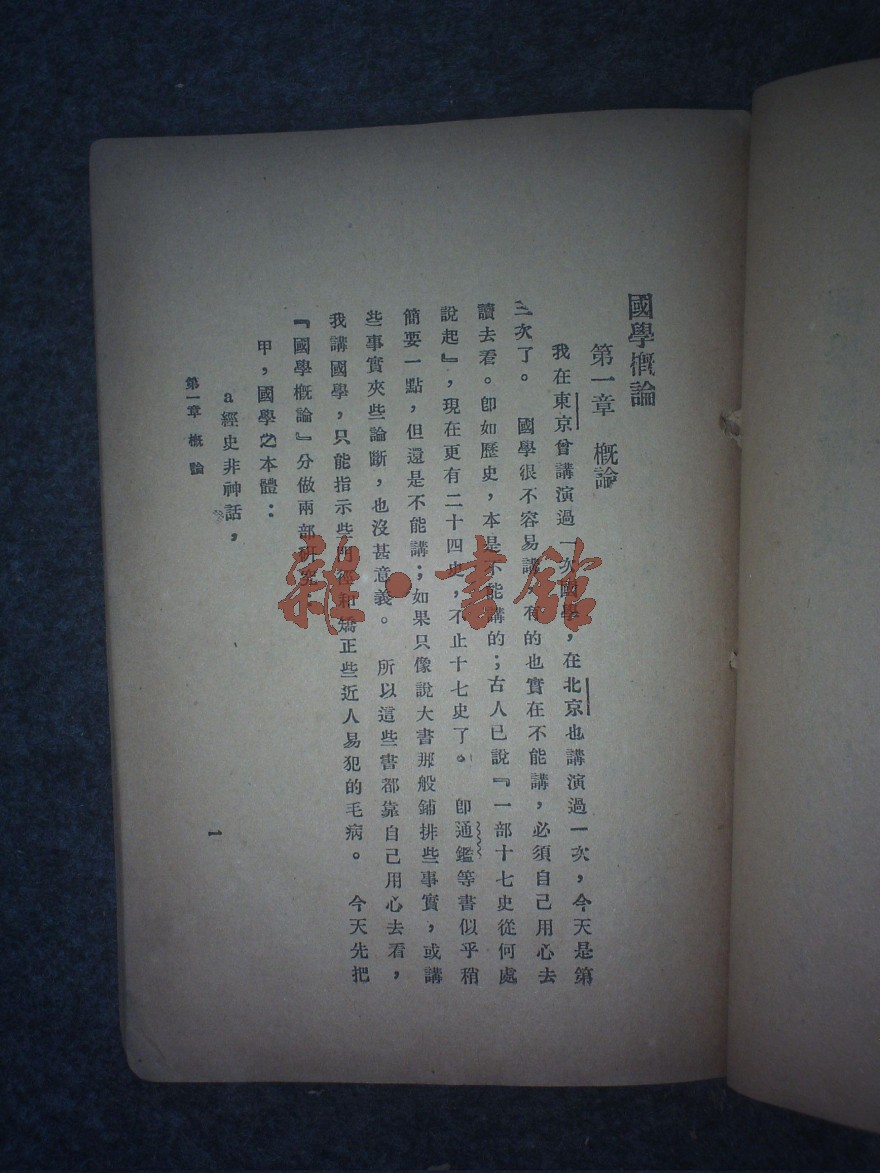 國學概論
第一章　概論
我在東京曾講演過一次國學，在北京也講演過一次，今天是第
三次了。國學很不容易講，有的也實在不能講，必須自己用心去
讀去看。卽如歷史，本是不能講的；古人已說『一部十七史從何處
說起』，現在更有二十四史，不止十七史了。卽通鑑等書似乎稍
簡要一點，但還是不能講；如果只像說大書那般鋪排些事實，或講
些事實夾些論斷，也沒甚意義。所以這些書都靠自己用心去看，
我講國學，只能指示些門徑和矯正些近人易犯的毛病。今天先把
『國學概論』分做兩部研究
甲，國學之本體：
a經史非神話，
第一章 概論
1
雜·書館